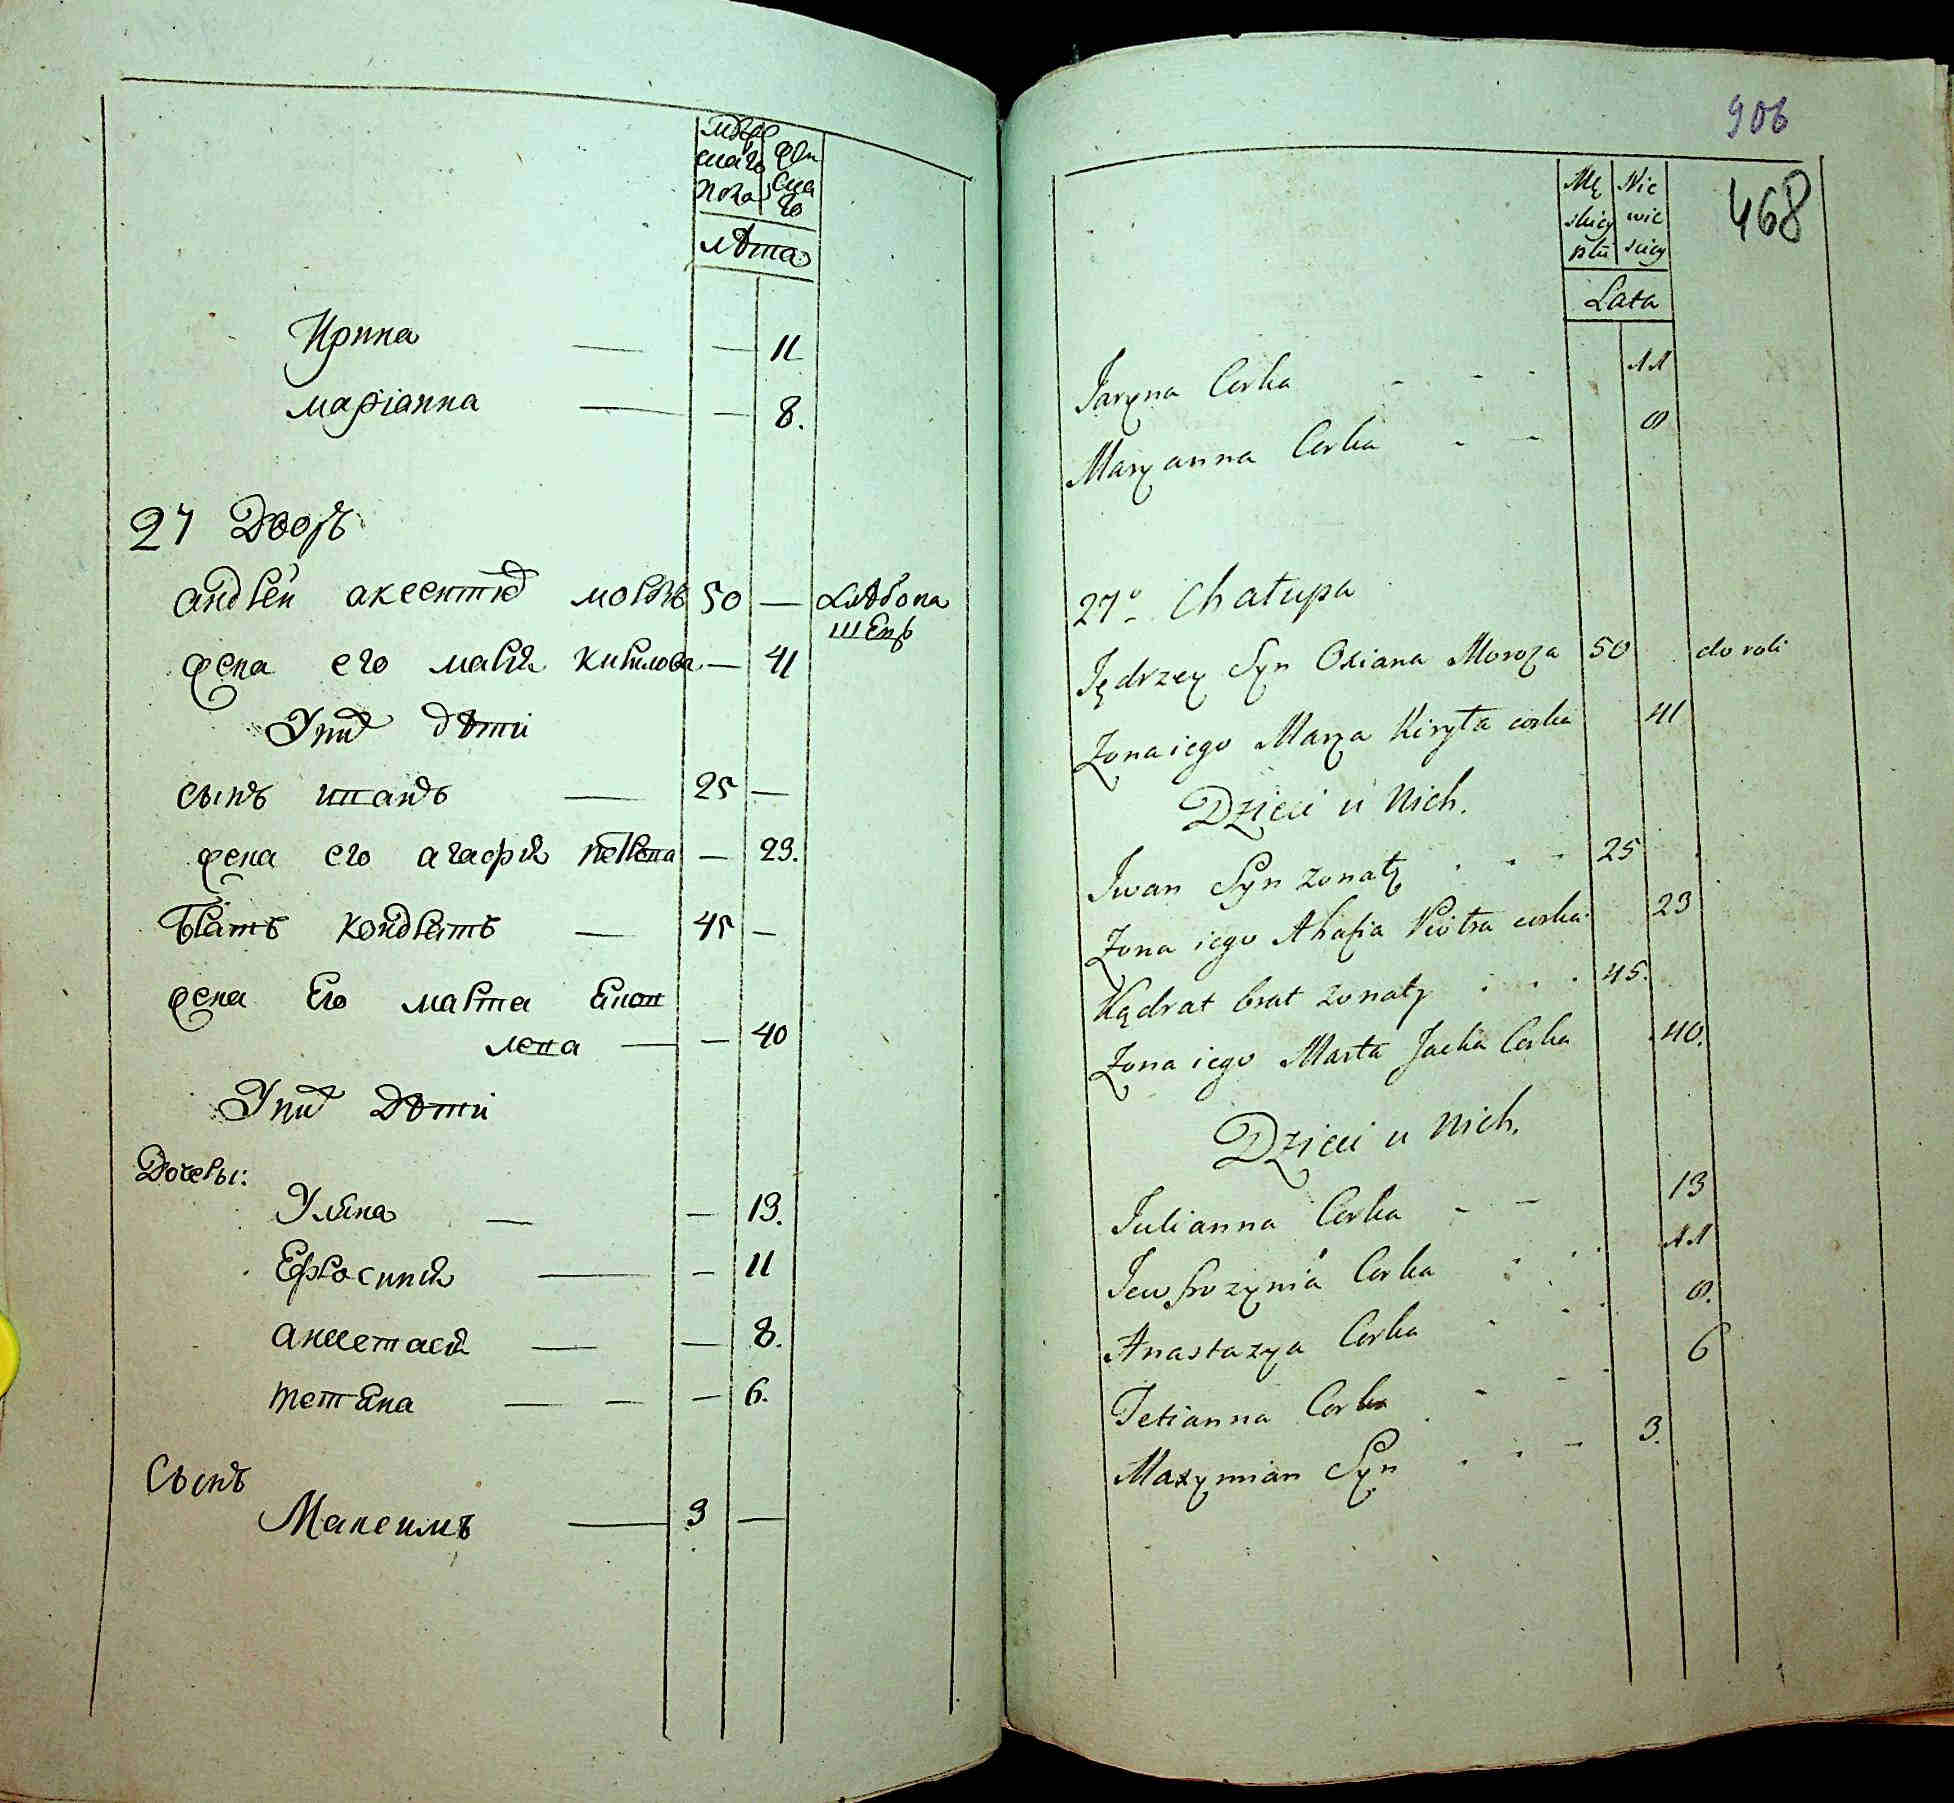 мужескаго пола | женскаго
лѣта
Ирина — — 11
маріанна — — 8.
27 Дворъ
андрей аксентіев морозъ 50 — хлѣбопашецъ
жена его марія кирилова — 41
У них дѣти
сынъ иванъ — 25 —
жена его агафия петрова — 23.
братъ кондратъ — 45 —
жена Его марта
лева — — 40
У них Дѣти
Дочеры:
Уляна — — 13.
Ефросиния — — 11
анастасия — — 8.
тетяна — — — 6.
Сынъ
Максимъ — 3 —
906
468
Męskiey płci | Niewieściey
Lata
Jaryna Corka - - - 11
Maryanna Corka - - 8
27o Chałupa
Jędrzey Syn Oxiana Moroza 50 do roli
Żona iego Marya Kiryła corka 41
Dzieci u Nich.
Iwan Syn żonaty . . . 25
Żona iego Ahafia Piotra corka 23
Kądrat brat żonaty . . . 45.
Żona iego Marta Jacka Corka 40.
Dzieci u Nich.
Julianna Corka - - 13
Jewfrozynia Corka 11
Anastazya Corka 8.
Tetianna Corka - - 6
Maxymian Syn . . - 3.